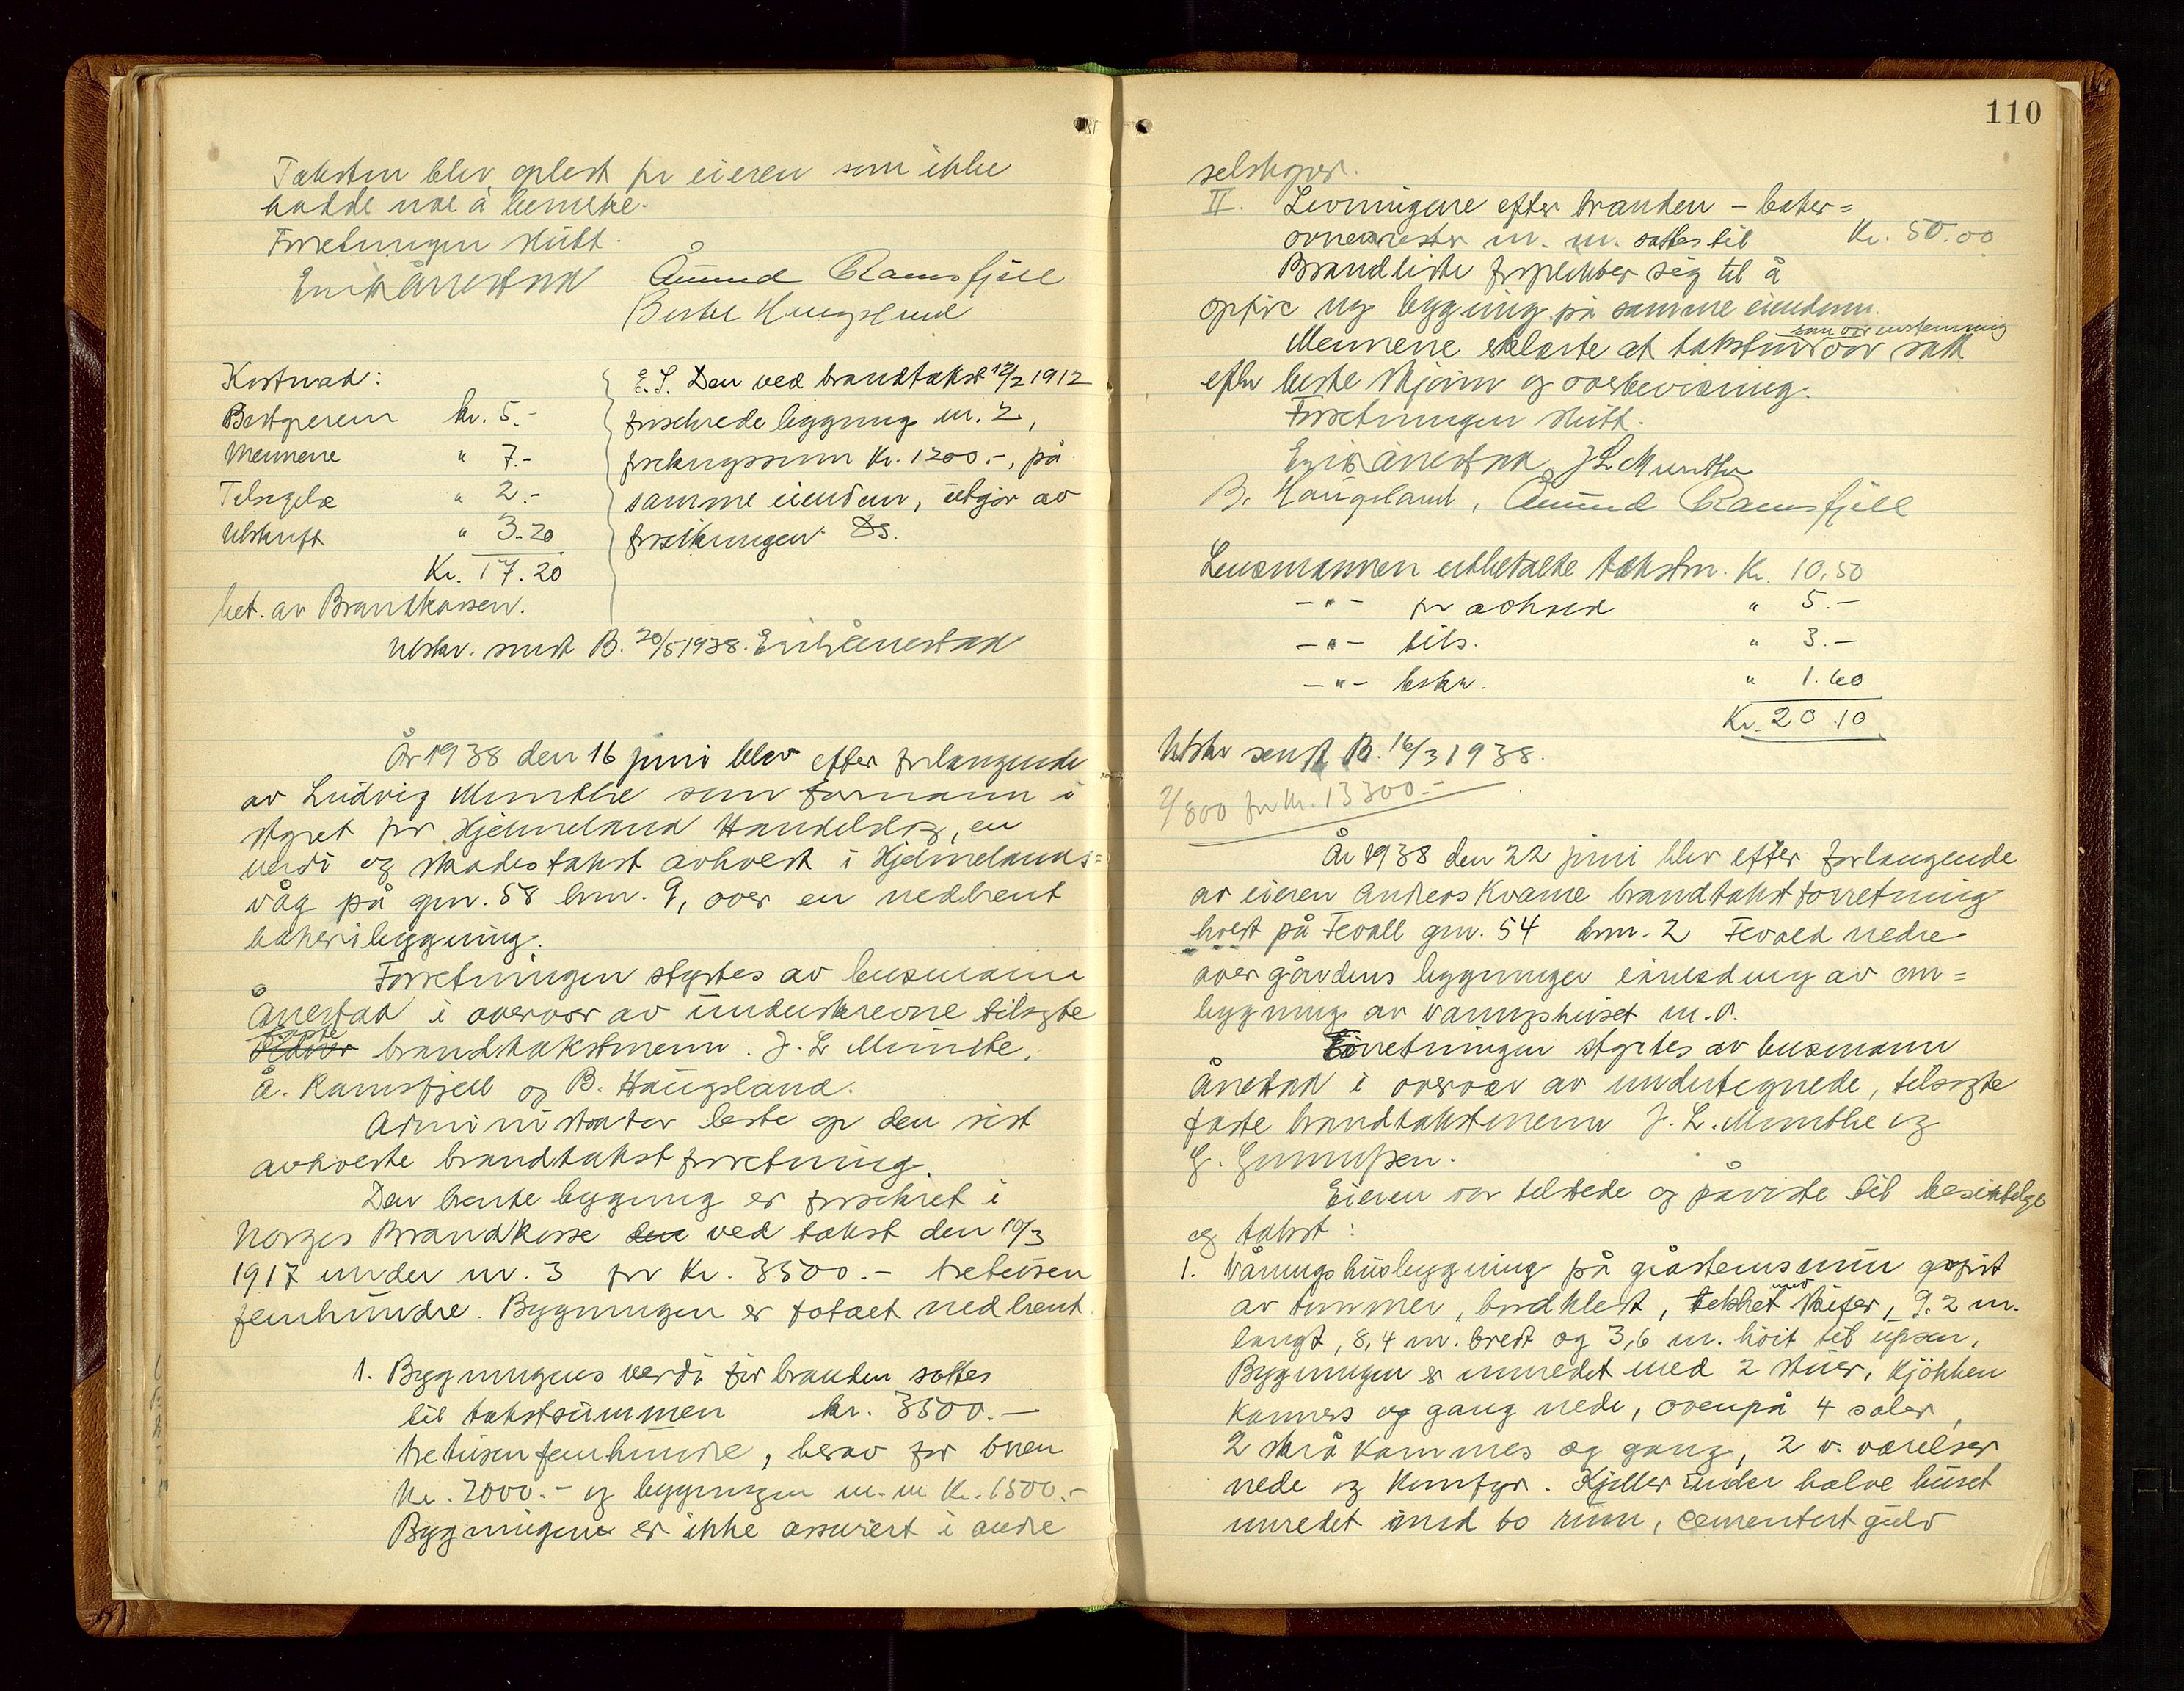 Taksten blev oplest for eieren som ikke
hadde noe å bemerke.
Forretningen slutt.
Erik Ånestad Åmund Ramsfjell
Bertel Haugslund
Kostnad:
Bestyreren kr. 5.-
Mennene " 7.-
Tilsigelse " 2.-
Utskrift " 3.20
Kr. 17.20
bet. av Brandkassen.
E. S. Den ved brandtakst 12/2 1912
forsikrede bygning nr. 2,
forsikringssum Kr. 1200.-, på
samme eiendom, utgår av
forsikringen. Ds.
Utskr. sendt B. 20/5 1938. Erik Ånestad
År 1938 den 16 juni blev efter forlangende
av Ludvig Munthe som formann i
styret for Hjelmeland Handelslag, en
verdi og skadestakst avholdt i Hjelmelands=
våg på gnr. 58 bnr. 9, over en nedbrent
bakeribygning.
Forretningen styrtes av lensmann
Ånestad i overvær av underskrevne tilsagte
faste brandtakstmenn. J. L. Munthe,
Å. Ramsfjell og B. Haugsland.
Administrator leste op den sist
avholdte brandtakstforretning.
Den brente bygning er forsikret i
Norges Brandkasse den ved takst den 10/3
1917 under nr. 3 for Kr. 3500.- tretusen
femhundre. Bygningen er totalt nedbrent.
1. Bygningens verdi før branden sattes
til takstsummen kr. 3500.-
tretusenfemhundre, herav for ovnen
Kr. 2000.- og bygningen m. m Kr. 1500.-
Bygningen er ikke assurert i andre
110
selskaper.
II. Levningene efter branden - baker=
ovnenrester m. m. sattes til Kr. 50.00
Brandlidte forplikter sig til å
opføre ny bygning på samme eiendom.
som var enstemmig
Mennene erklærte at taksten var satt
efter beste skjønn og overbevisning.
Forretningen slutt.
Erik Ånestad J L Munthe
B. Haugsland, Åmund Ramsfjell
Lensmannen utbetalte takstm. Kr. 10.50
-"- for avhold " 5.-
-"- tils. " 3.-
-"- beskr. " 1.60
Kr. 20.10
Utskr sendt B. 16/3 1938.
2/800 for kr. 13300.-
År 1938 den 22 juni blev efter forlangende
av eieren Andreas Kvame brandtakstforretning
holdt på Tevoll gnr. 54 bnr. 2 Tevold nedre
over gårdens bygninger i anledning av om=
bygning av våningshuset m. v.
Forretningen styrtes av lensmann
Ånestad i overvær av undertegnede, tilsagte
faste brandtakstmenn J. L. Munthe og
G. Gunnufsen.
Eieren var tilstede og påviste til besiktelse
og takst:
1. Våningshusbygning på gråstensmur opført
av tømmer, bordkledt, tekket med skifer, 9.2 m.
langt, 8,4 m. bredt og 3,6 m. høit til upsen,
Bygningen er innredet med 2 stuer, kjøkken
kammers og gang nede, ovenpå 4 saler,
2 skråkammers og gang, 2 v. værelser
nede og komfyr. Kjeller under halve huset
innredet med to rum, cementert gulv